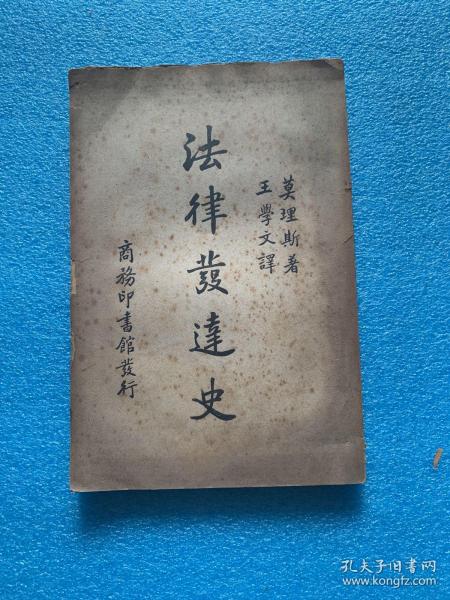 莫理斯著
王學文譯
法律發達史
商務印書館發行
孔夫子旧书网
www.kongfz.com